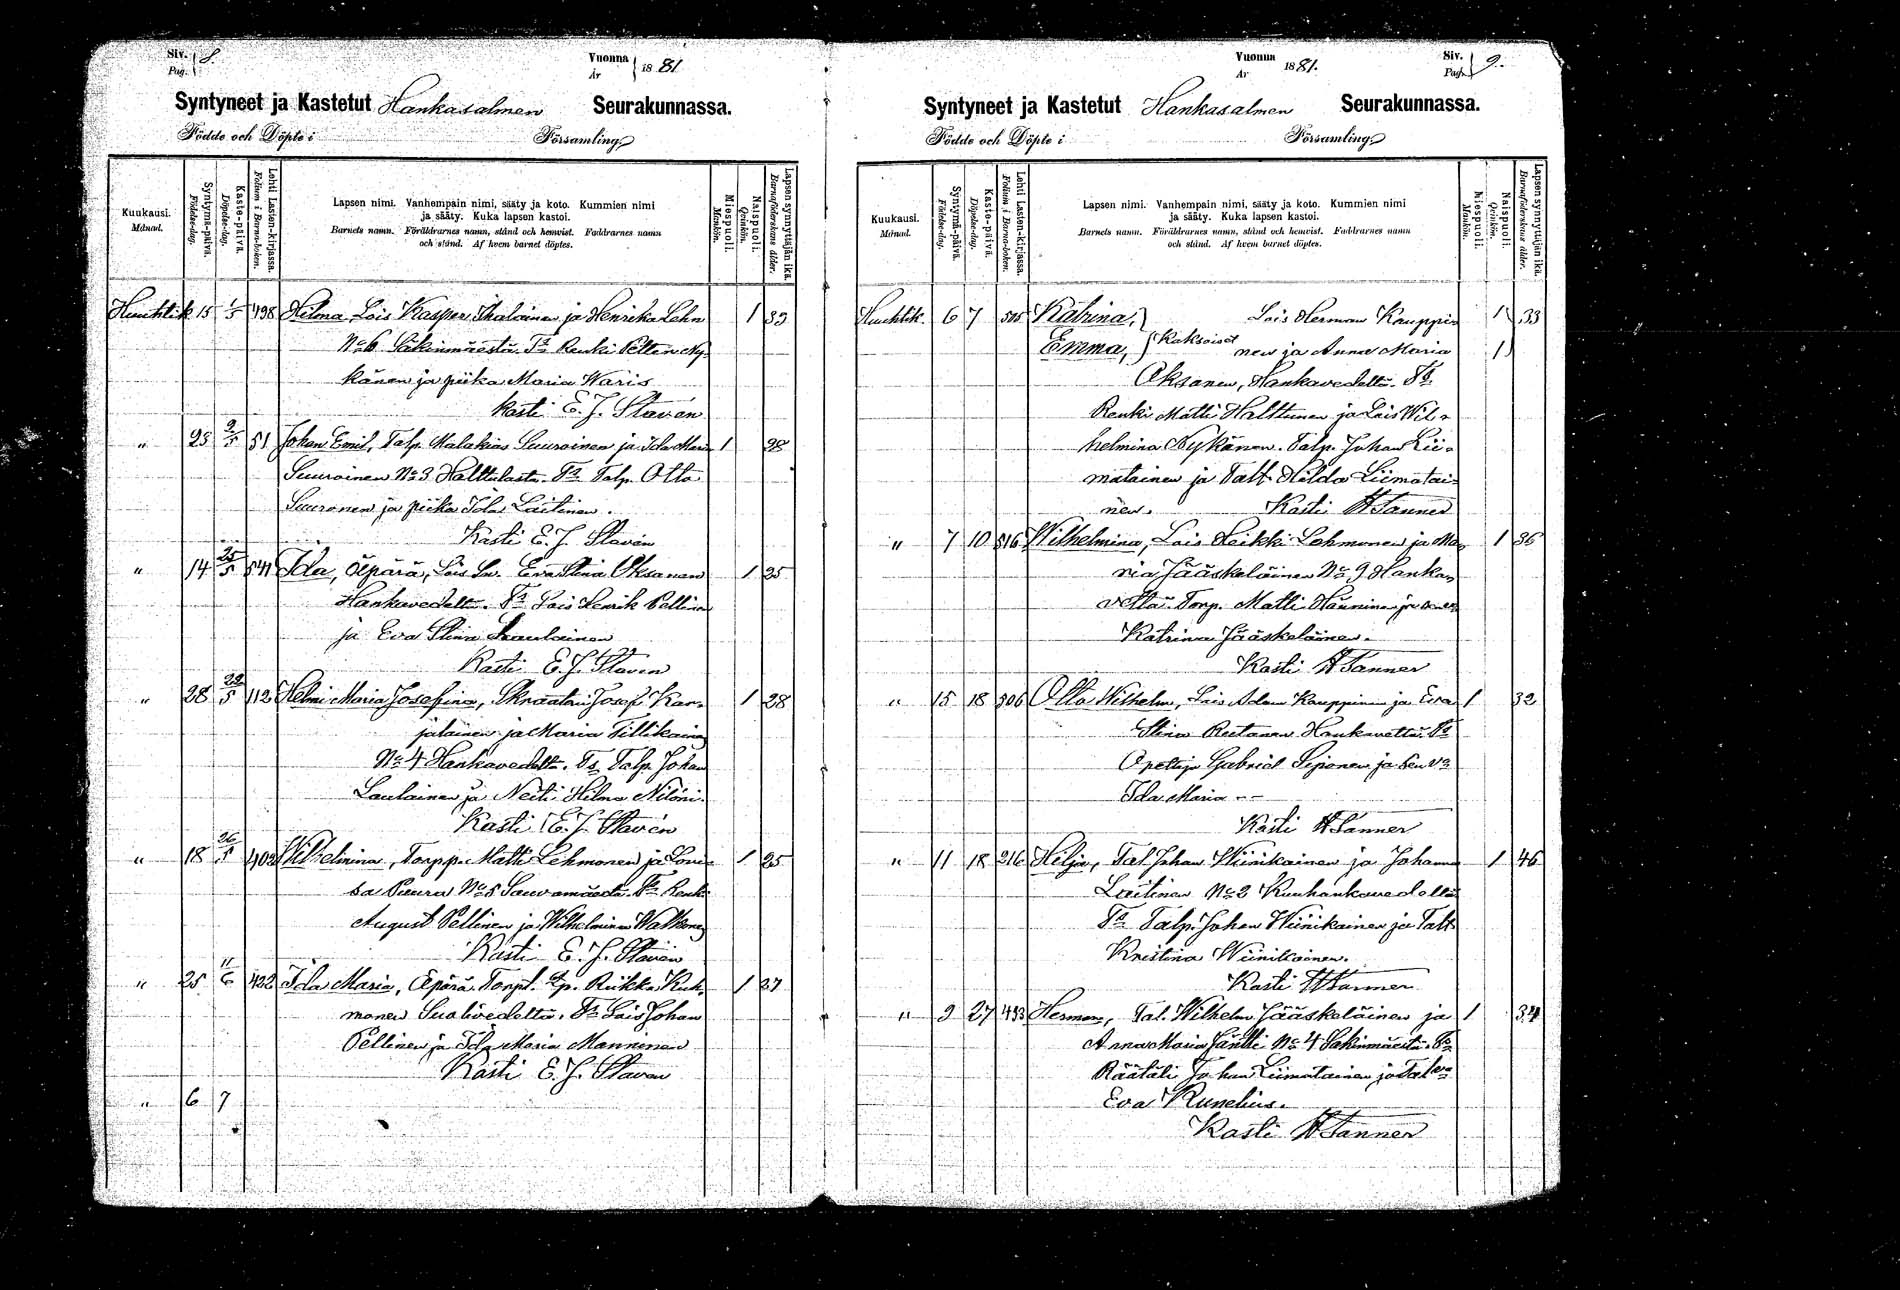 Siv. Pag. 8.
Vuonna År 1881
Syntyneet ja Kastetut Hankasalmen Seurakunnassa.
Födde och Döpte i Församling
Kuukausi. Månad.
Syntymä-päivä. Födelse-dag.
Kaste-päivä. Döpelse-dag.
Lehti Lasten-kirjassa. Folium i Barna-boken.
Lapsen nimi. Vanhempain nimi, sääty ja koto. Kummien nimi
ja sääty. Kuka lapsen kastoi.
Barnets namn. Föräldrarnes namn, stånd och hemvist. Faddrarnes namn
och stånd. Af hvem barnet döptes.
Miespuoli. Mankön.
Naispuoli. Qvinkön.
Lapsen synnyttäjän ikä. Barnaföderskans ålder.
Huhtik 15 1/5 498 Hilma, Lois Kasper Ihalainen ja Henrika Lehn 1 39
No 6 Säkinmäestä. Ts Renki Petter Ny-
känen ja piika Maria Waris
Kasti E. J. Stavén
" 23 2/5 51 Johan Emil, Talp. Malakias Suuroinen ja Ida Maria 1 28
Suuroinen No 3 Halttulasta. Ts Talp. Otto
Suuronen ja piika Ida Laitinen.
Kasti E. J. Stavén
" 14 25/5 541 Ida, Äpärä, Lois Eva Stina Oksanen 1 25
Hankavedelta. Ts Lois Henrik Pellinen
ja Eva Stina Laulainen
Kasti E. J. Stavén
" 28 22/5 112 Helmi Maria Josefina, Skraatari Josef Kar- 1 28
jalainen ja Maria Tillikainen
No 4 Hankavedelta. Ts Talp. Johan
Laulainen ja Neiti Hilma
Kasti E. J. Stavén
" 18 26/5 402 Wilhelmina, Torpp. Matti Lehmonen ja Lovi- 1 25
sa Puura No 5 Sauvamäestä. Ts Renki
August Pellinen ja Wilhelmina Watkonen
Kasti E. J. Stavén
" 25 11/6 422 Ida Maria, Äpärä Torpl. Riikka Kuh- 1 27
monen Suolivedeltä. Ts Lois Johan
Pellinen ja Ida Maria Manninen
Kasti E. J. Stavén
" 6 7
Vuonna År 1881.
Siv. Pag. 9.
Syntyneet ja Kastetut Hankasalmen Seurakunnassa.
Födde och Döpte i Församling
Kuukausi. Månad.
Syntymä-päivä. Födelse-dag.
Kaste-päivä. Döpelse-dag.
Lehti Lasten-kirjassa. Folium i Barna-boken.
Lapsen nimi. Vanhempain nimi, sääty ja koto. Kummien nimi
ja sääty. Kuka lapsen kastoi.
Barnets namn. Föräldrarnes namn, stånd och hemvist. Faddrarnes namn
och stånd. Af hvem barnet döptes.
Miespuoli. Mankön.
Naispuoli. Qvinkön.
Lapsen synnyttäjän ikä. Barnaföderskans ålder.
Huhtik. 6 7 505 Katrina, Lois Herman Kauppi- 1 33
Emma, Kaksoiset nen ja Anna Maria 1
Oksanen, Hankavedeltä. Ts
Renki Matti Halttunen ja Lois Wil-
helmina Nykänen. Talp. Johan Lii-
matainen ja Talt Hilda Liimatai-
nen. Kasti H Tanner
" 7 10 516 Wilhelmina, Lois Heikki Lehmonen ja Ma- 1 36
ria Jääskeläinen No 9 Hanka-
vettä. Torp. Matti Hänninen ja
Katrina Jääskeläinen.
Kasti H Tanner
" 15 18 506 Otto Wilhelm, Lois Adam Kauppinen ja Eva 1 32
Stina Rutanen Hankavettä. Ts
Gabriel Siponen ja
Ida Maria --
Kasti H Tanner
" 11 18 216 Hilja, Tal. Johan Wiinikainen ja Johanna 1 46
Laitinen No 2 Kuuhankavedeltä
Ts Talp. Johan Wiinikainen ja Talt
Kristina Wiinikainen.
Kasti H Tanner
" 9 27 493 Herman, Tal. Wilhelm Jääskeläinen ja 1 34
Anna Maria Jäntti No 4 Säkinmäestä. Ts
Räätäli Johan Liimatainen ja Tal
Eva Runelius.
Kasti H Tanner